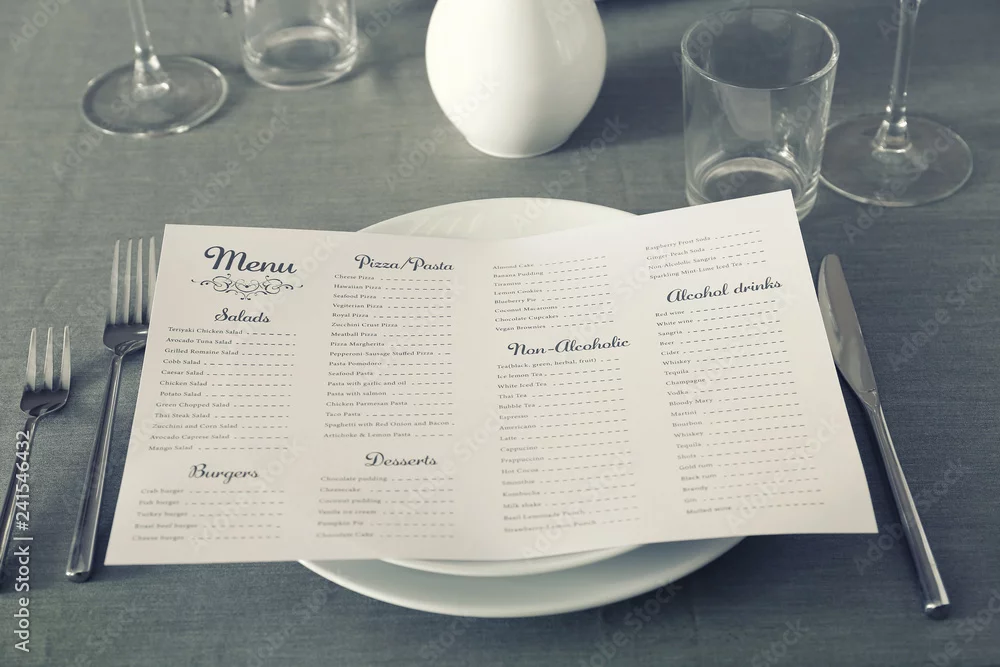 Menu
Salads
Teriyaki Chicken Salad
Avocado Tuna Salad
Grilled Romaine Salad
Cobb Salad
Caesar Salad
Chicken Salad
Potato Salad
Green Chopped Salad
Thai Steak Salad
Zucchini and Corn Salad
Avocado Caprese Salad
Mango Salad
Burgers
Crab burger
Fish burger
Turkey burger
Roast beef burger
Cheese burger
Pizza/Pasta
Cheese Pizza
Hawaiian Pizza
Seafood Pizza
Vegeterian Pizza
Royal Pizza
Zucchini Crust Pizza
Meatball Pizza
Pizza Margherita
Pepperoni-Sausage Stuffed Pizza
Pasta Pomodoro
Seafood Pasta
Pasta with garlic and oil
Pasta with salmon
Chicken Parmesan Pasta
Taco Pasta
Spaghetti with Red Onion and Bacon
Artichoke & Lemon Pasta
Desserts
Chocolate pudding
Cheesecake
Coconut pudding
Vanila ice cream
Pumpkin Pie
Chocolate Cake
Almond Cake
Banana Pudding
Tiramisu
Lemon Cookies
Blueberry Pie
Coconut Macaroons
Chocolate Cupcakes
Vegan Brownies
Non-Alcoholic
Tea(black, green, herbal, fruit)
Ice lemon Tea
White Iced Tea
Thai Tea
Bubble Tea
Espresso
Americano
Latte
Cappuccino
Frappuccino
Hot Cocoa
Smoothie
Kombucha
Milk shake
Basil Lemonade Punch
Strawberry-Lemon Punch
Raspberry Fruit Soda
Ginger Peach Soda
Non-Alcoholic Sangria
Sparkling Mint-Lime Iced Tea
Alcohol drinks
Red wine
White wine
Sangria
Beer
Cider
Whiskey
Tequila
Champagne
Vodka
Bloody Mary
Martini
Bourbon
Whiskey
Tequila
Shots
Gold rum
Black rum
Brandy
Gin
Mulled wine
Adobe Stock | #241546432
Adobe Stock